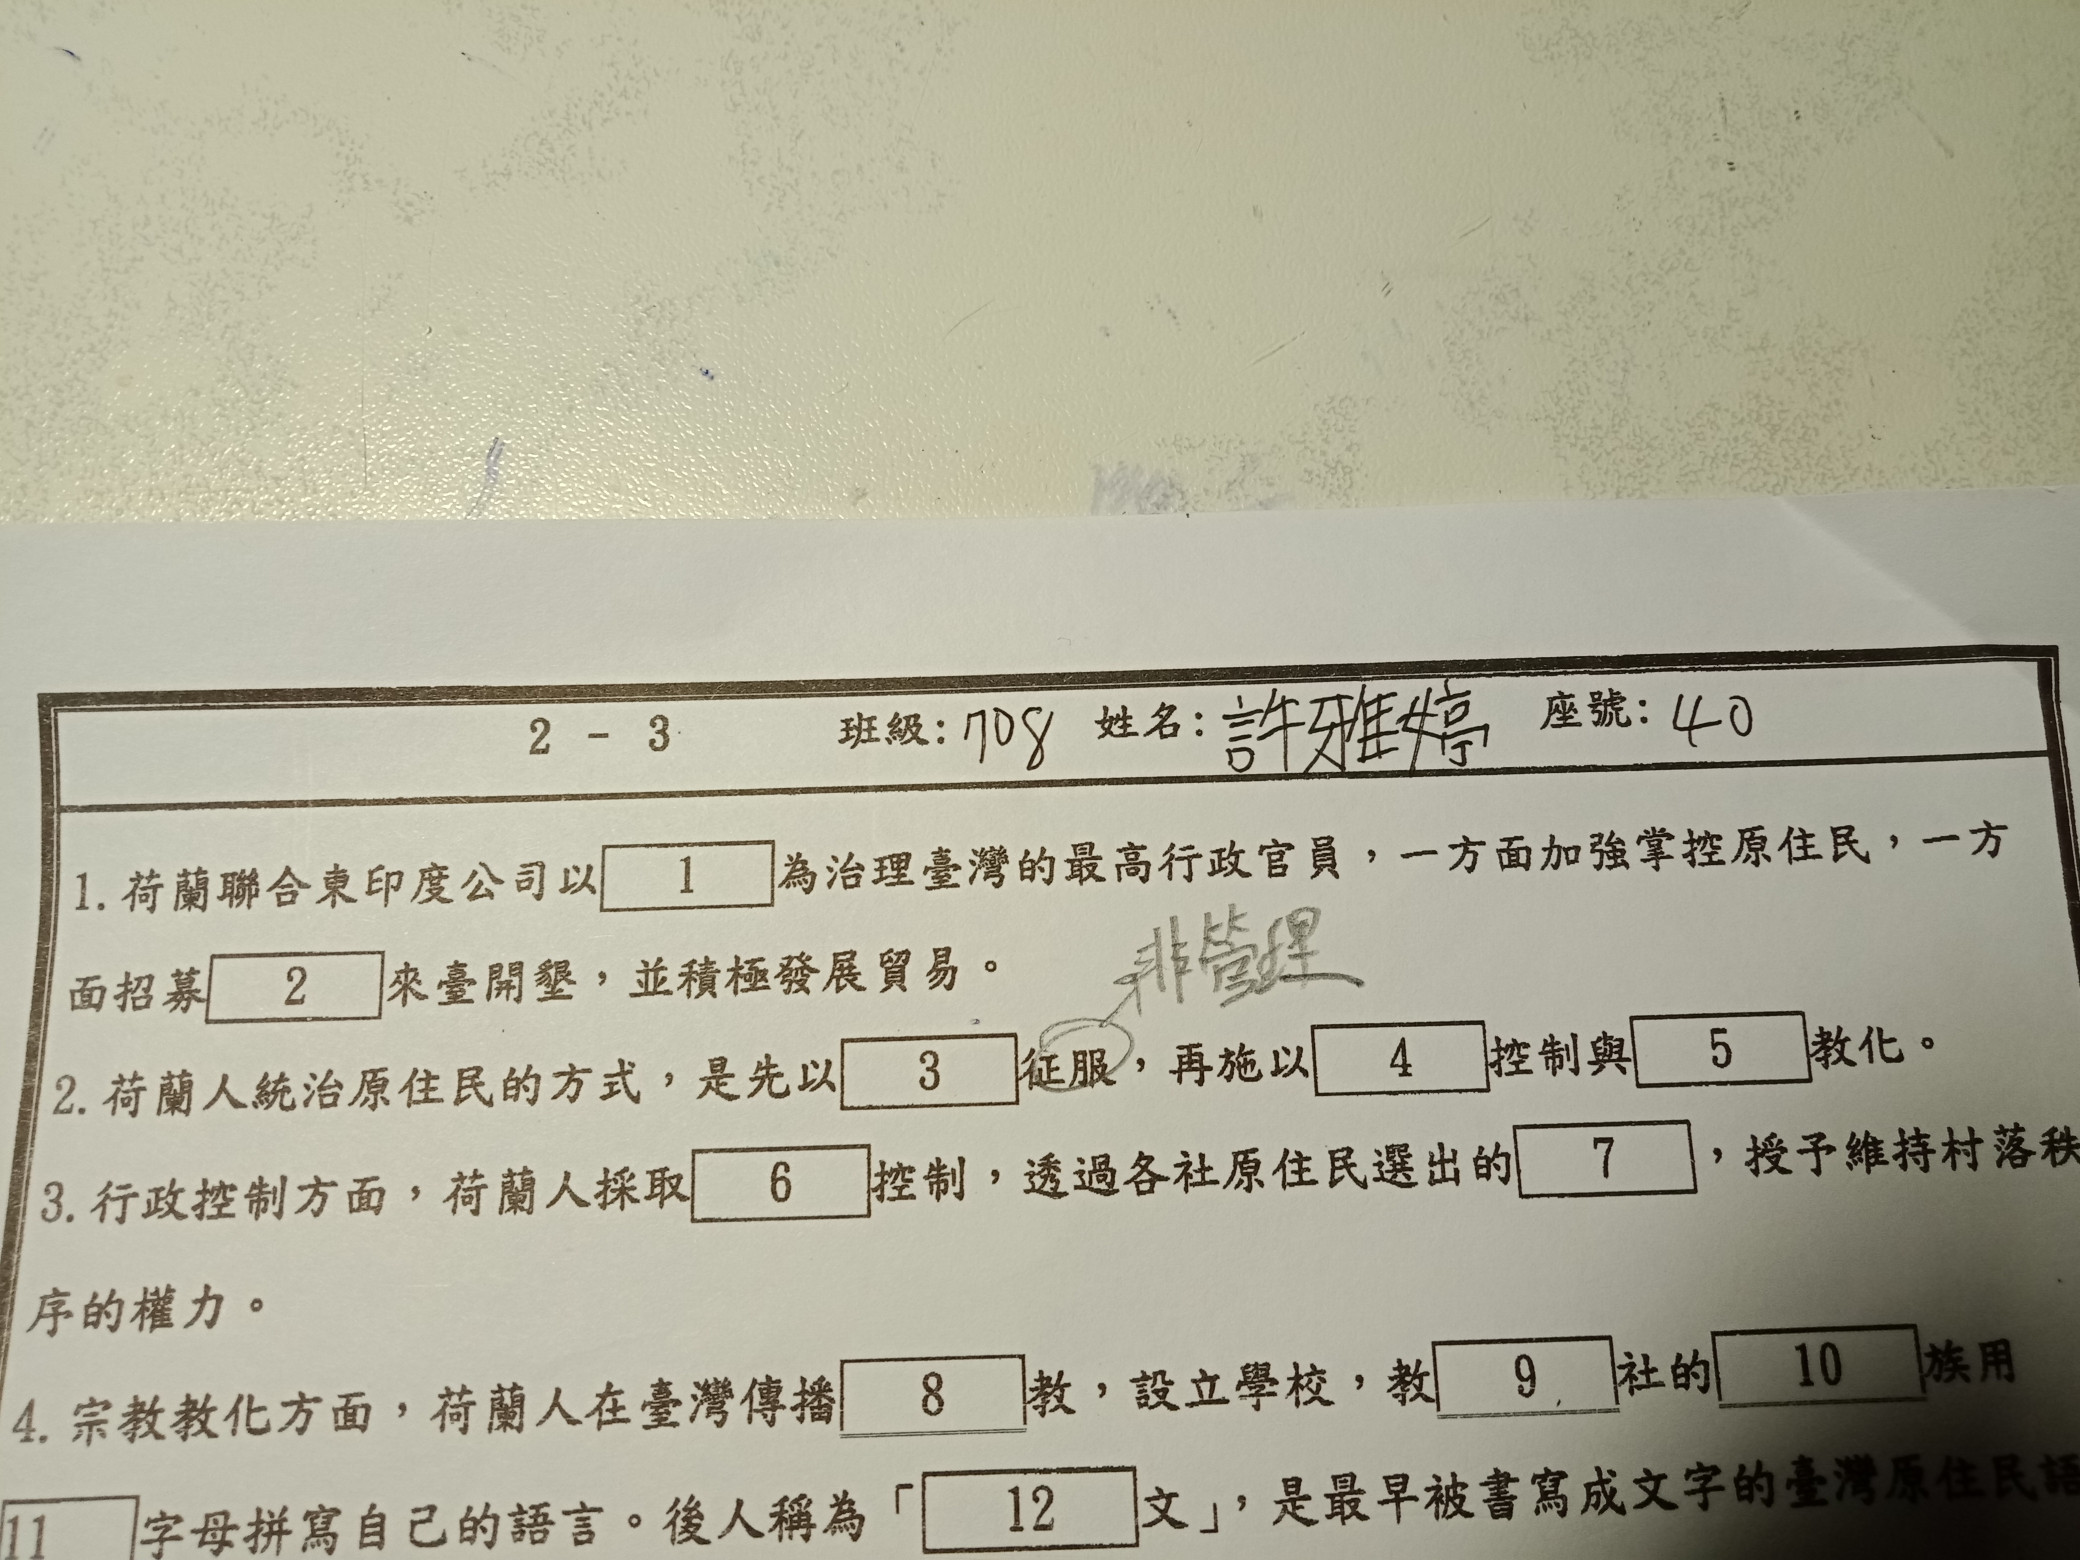 2 - 3 班級: 708 姓名: 許雅婷 座號: 40
1. 荷蘭聯合東印度公司以 1 為治理臺灣的最高行政官員，一方面加強掌控原住民，一方
面招募 2 來臺開墾，並積極發展貿易。
非管理
2. 荷蘭人統治原住民的方式，是先以 3 征服，再施以 4 控制與 5 教化。
3. 行政控制方面，荷蘭人採取 6 控制，透過各社原住民選出的 7 ，授予維持村落秩
序的權力。
4. 宗教教化方面，荷蘭人在臺灣傳播 8 教，設立學校，教 9 社的 10 族用
11 字母拼寫自己的語言。後人稱為「 12 文」，是最早被書寫成文字的臺灣原住民語